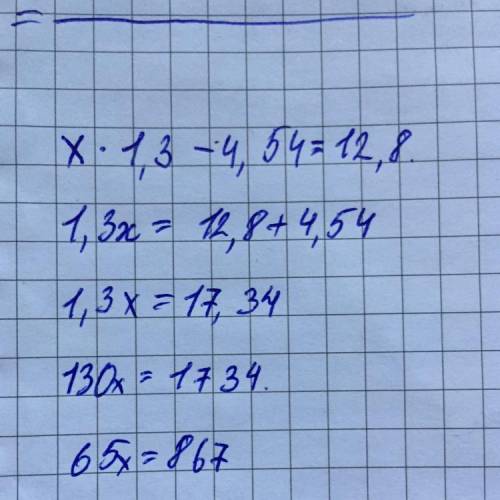 x · 1,3 - 4,54 = 12,8.
1,3x = 12,8 + 4,54
1,3x = 17,34
130x = 1734.
65x = 867